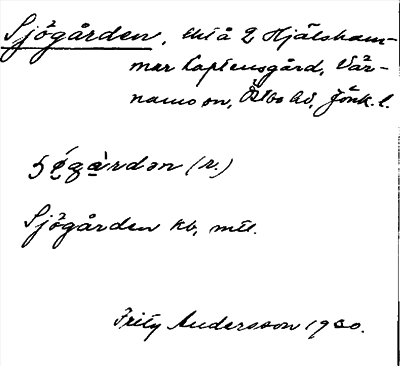 Sjögården, utl å 2 Hjälsham-
mar Kaptensgård, Vär-
namo sn, Östbo hd, Jönk. l.
(r.)
Sjögården kb, mtl.
Fritz Andersson 1930.